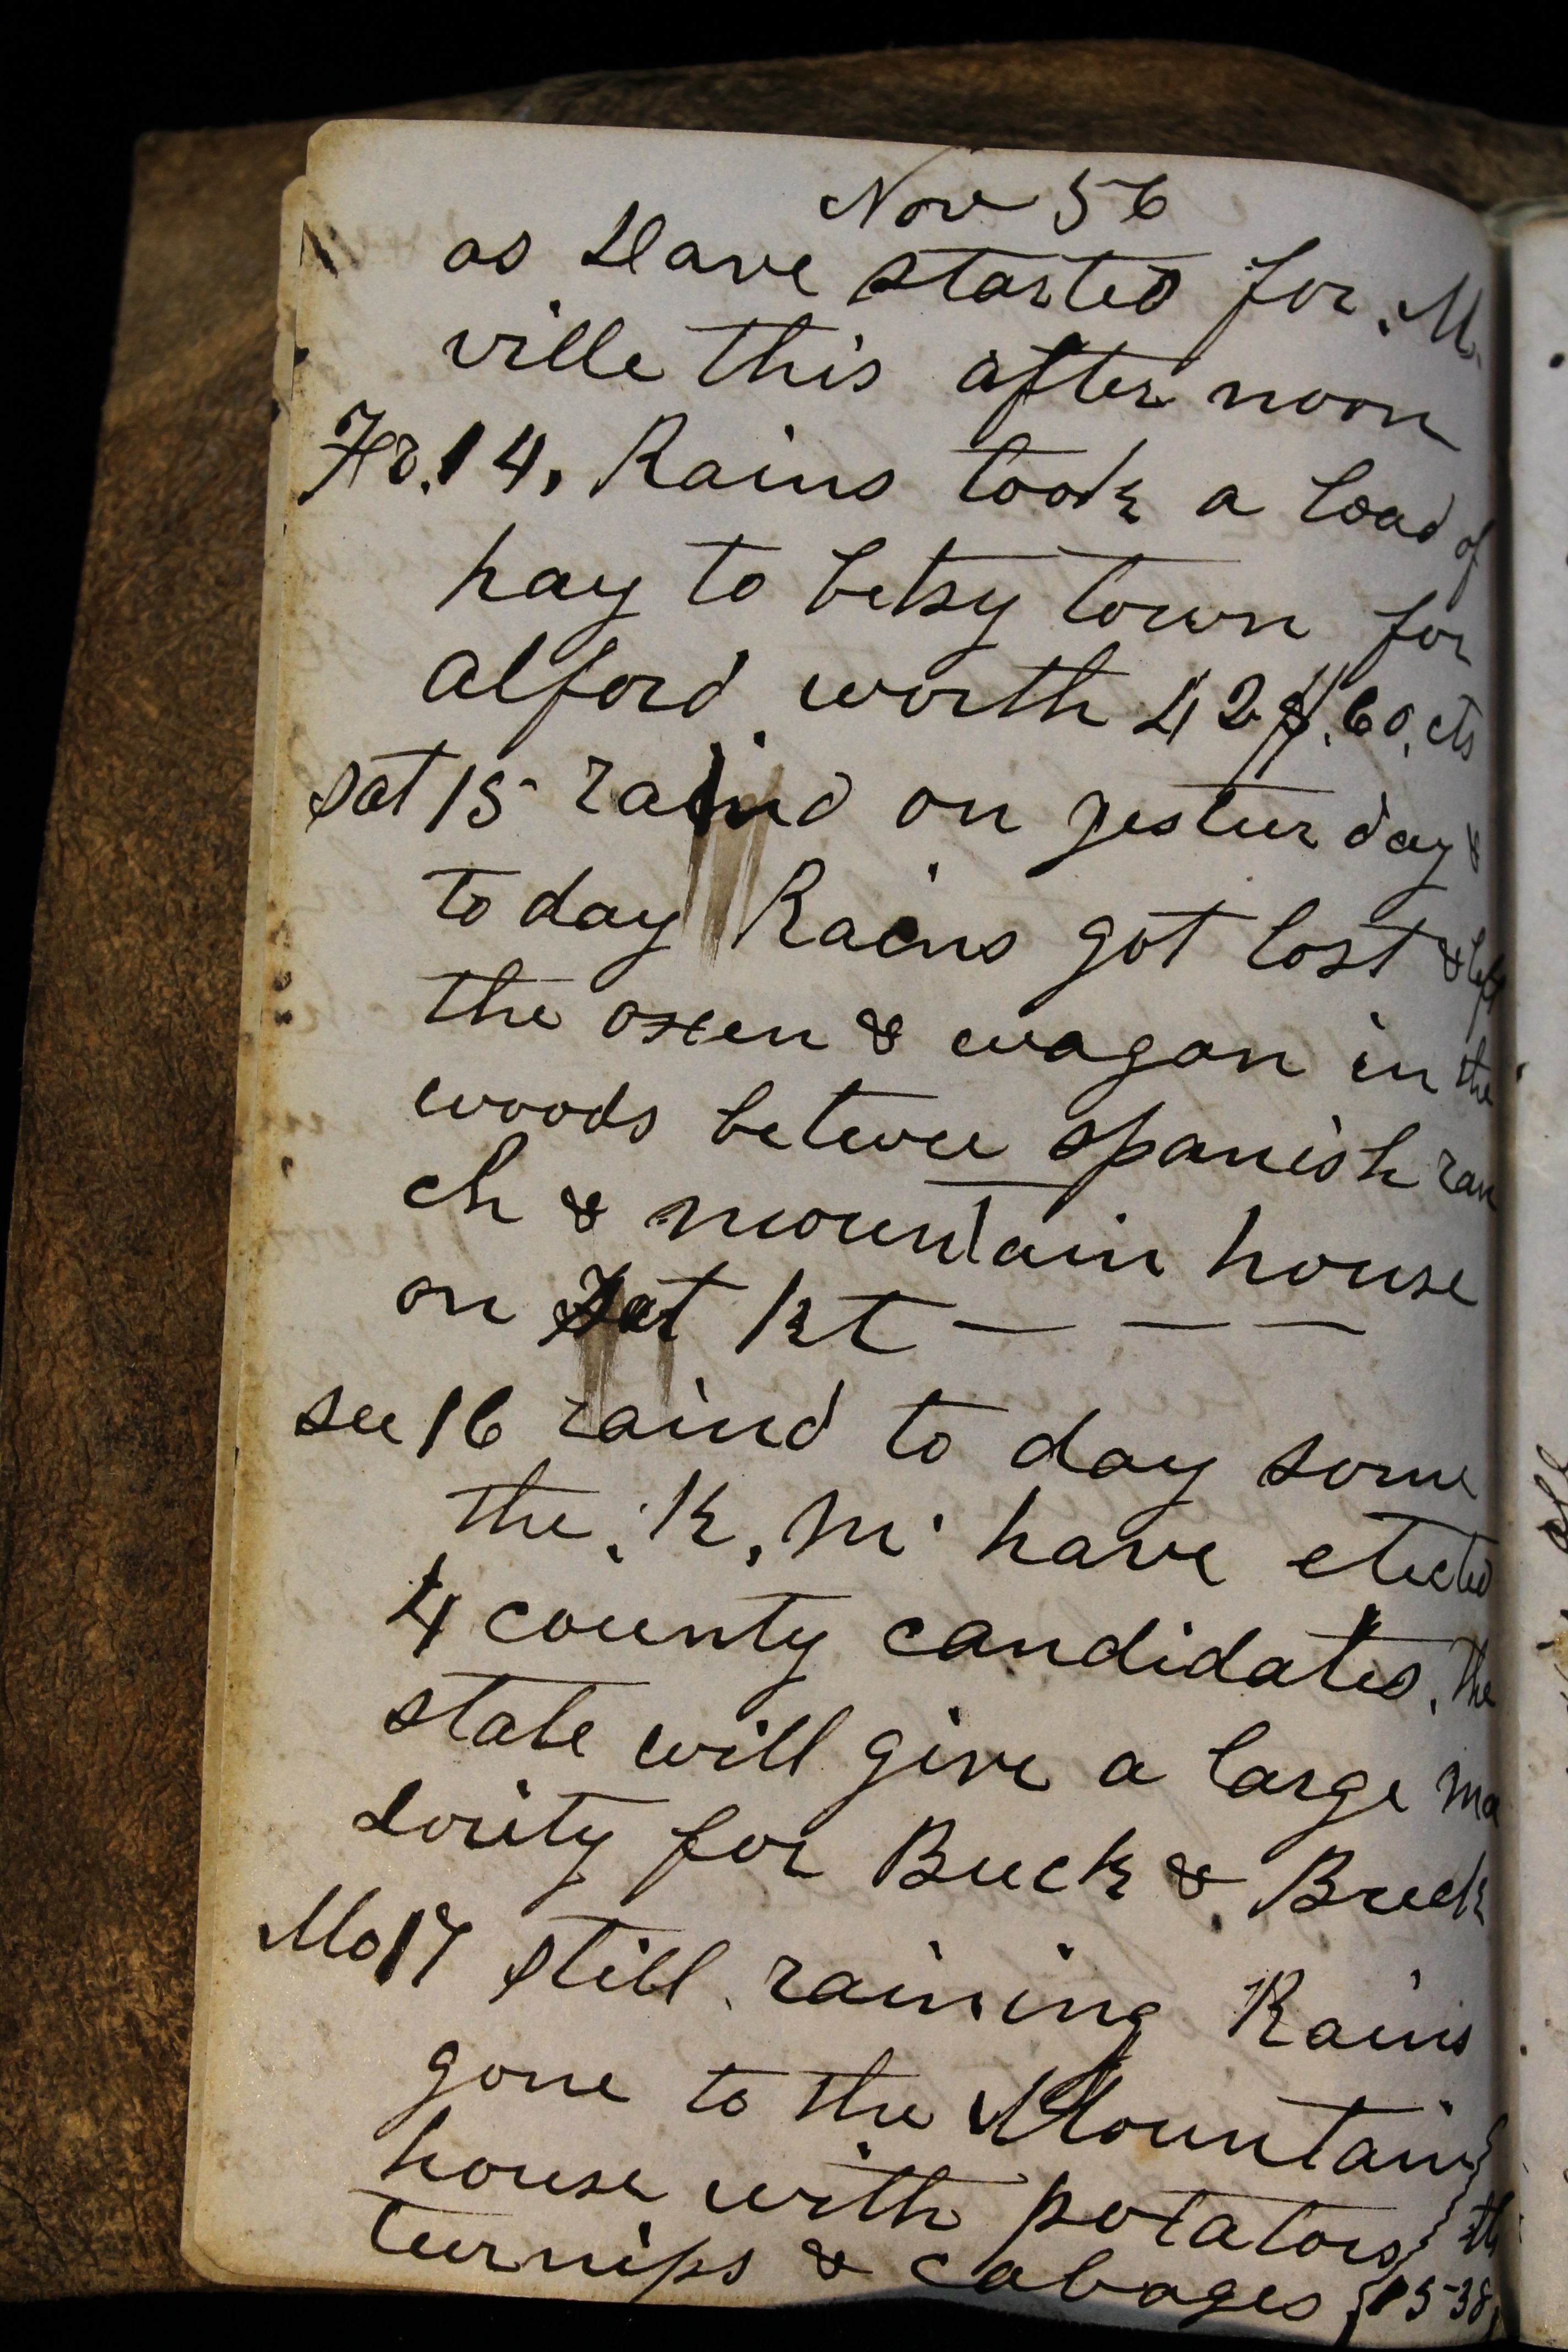 Nov 56
as Dave started for M.
ville this after noon
Fr. 14, Rains took a load of
hay to betsy town for
Alford worth 42$.60.cts
sat 15 raind on yesturday &
to day Rains got lost & left
the oxen & wagon in the
woods betwee spanish ran
ch & mountain house
on Sat kt — — —
su 16 raind to day some
the K. N. have elected
4 county candidates. the
state will give a large ma
Jority for Buck & Breck
Mo 17 still raining Rains
gone to the Mountain
house with potatoes
turnips & cabages 15-38